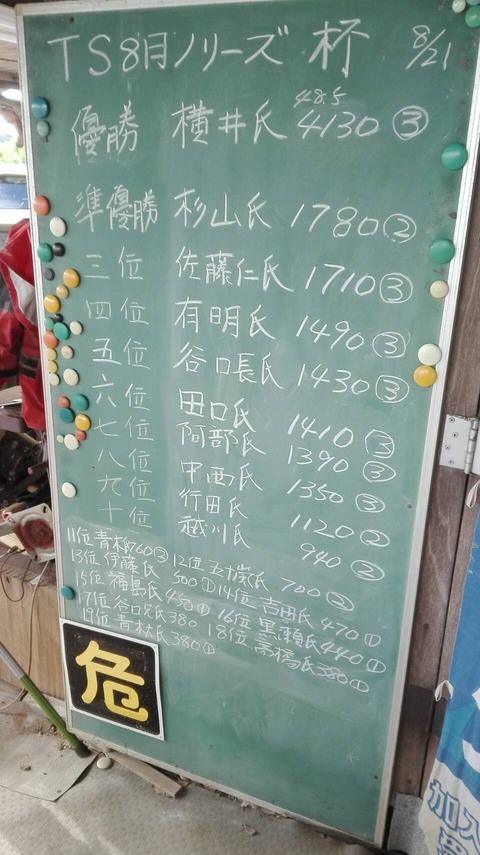 TS8月ノリーズ杯 8/21
48.5
優勝 横井氏 4130③
準優勝 杉山氏 1780②
三位 佐藤仁氏 1710③
四位 有明氏 1490③
五位 谷口長氏 1430③
六位 田口氏 1410③
七位 阿部氏 1390③
八位 中西氏 1350③
九位 行田氏 1120②
十位 越川氏 940②
11位 青柳 760② 12位 五十嵐氏 700②
13位 伊藤氏 500① 14位 吉田氏 470①
15位 福島氏 450① 16位 黒瀬氏 440①
17位 谷口兄氏 380 18位 高橋氏 380①
19位 青木氏 380①
危
加入